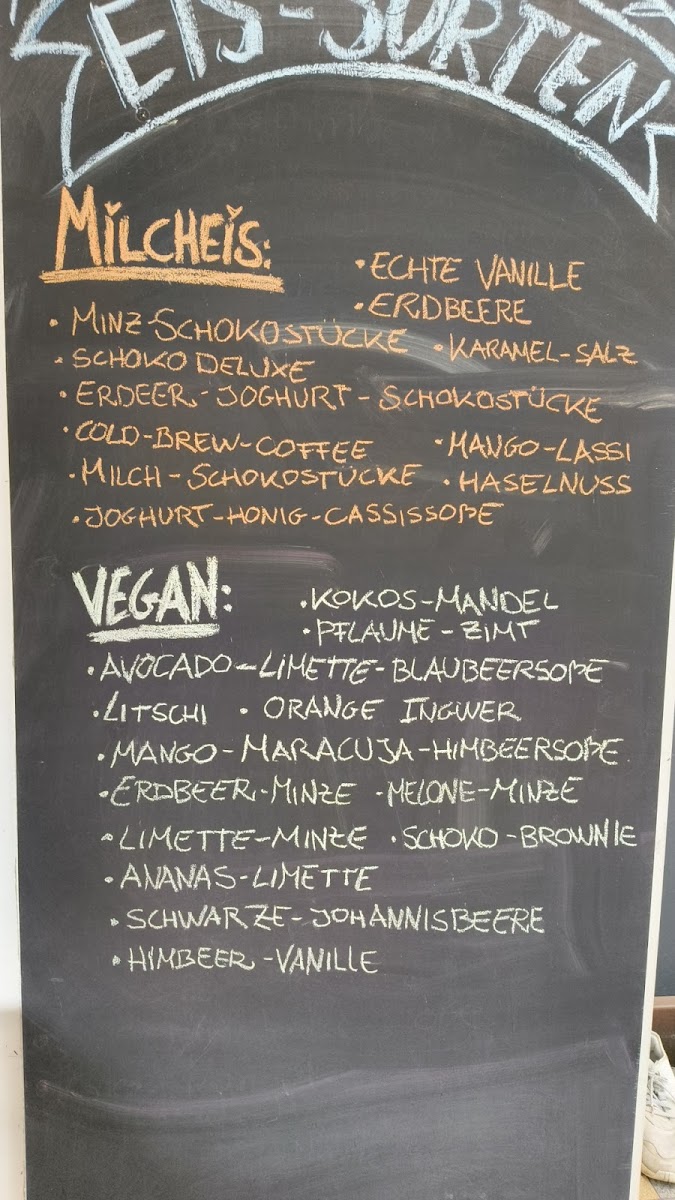 EIS-SORTEN
MILCHEIS:
• ECHTE VANILLE
• ERDBEERE
• MINZ-SCHOKOSTÜCKE • KARAMEL-SALZ
• SCHOKO DELUXE
• ERDEER-JOGHURT-SCHOKOSTÜCKE
• COLD-BREW-COFFEE • MANGO-LASSI
• MILCH-SCHOKOSTÜCKE • HASELNUSS
• JOGHURT-HONIG-CASSISSOßE
VEGAN:
• KOKOS-MANDEL
• PFLAUME-ZIMT
• AVOCADO-LIMETTE-BLAUBEERSOßE
• LITSCHI • ORANGE INGWER
• MANGO-MARACUJA-HIMBEERSOßE
• ERDBEER-MINZE • MELONE-MINZE
• LIMETTE-MINZE • SCHOKO-BROWNIE
• ANANAS-LIMETTE
• SCHWARZE-JOHANNISBEERE
• HIMBEER-VANILLE